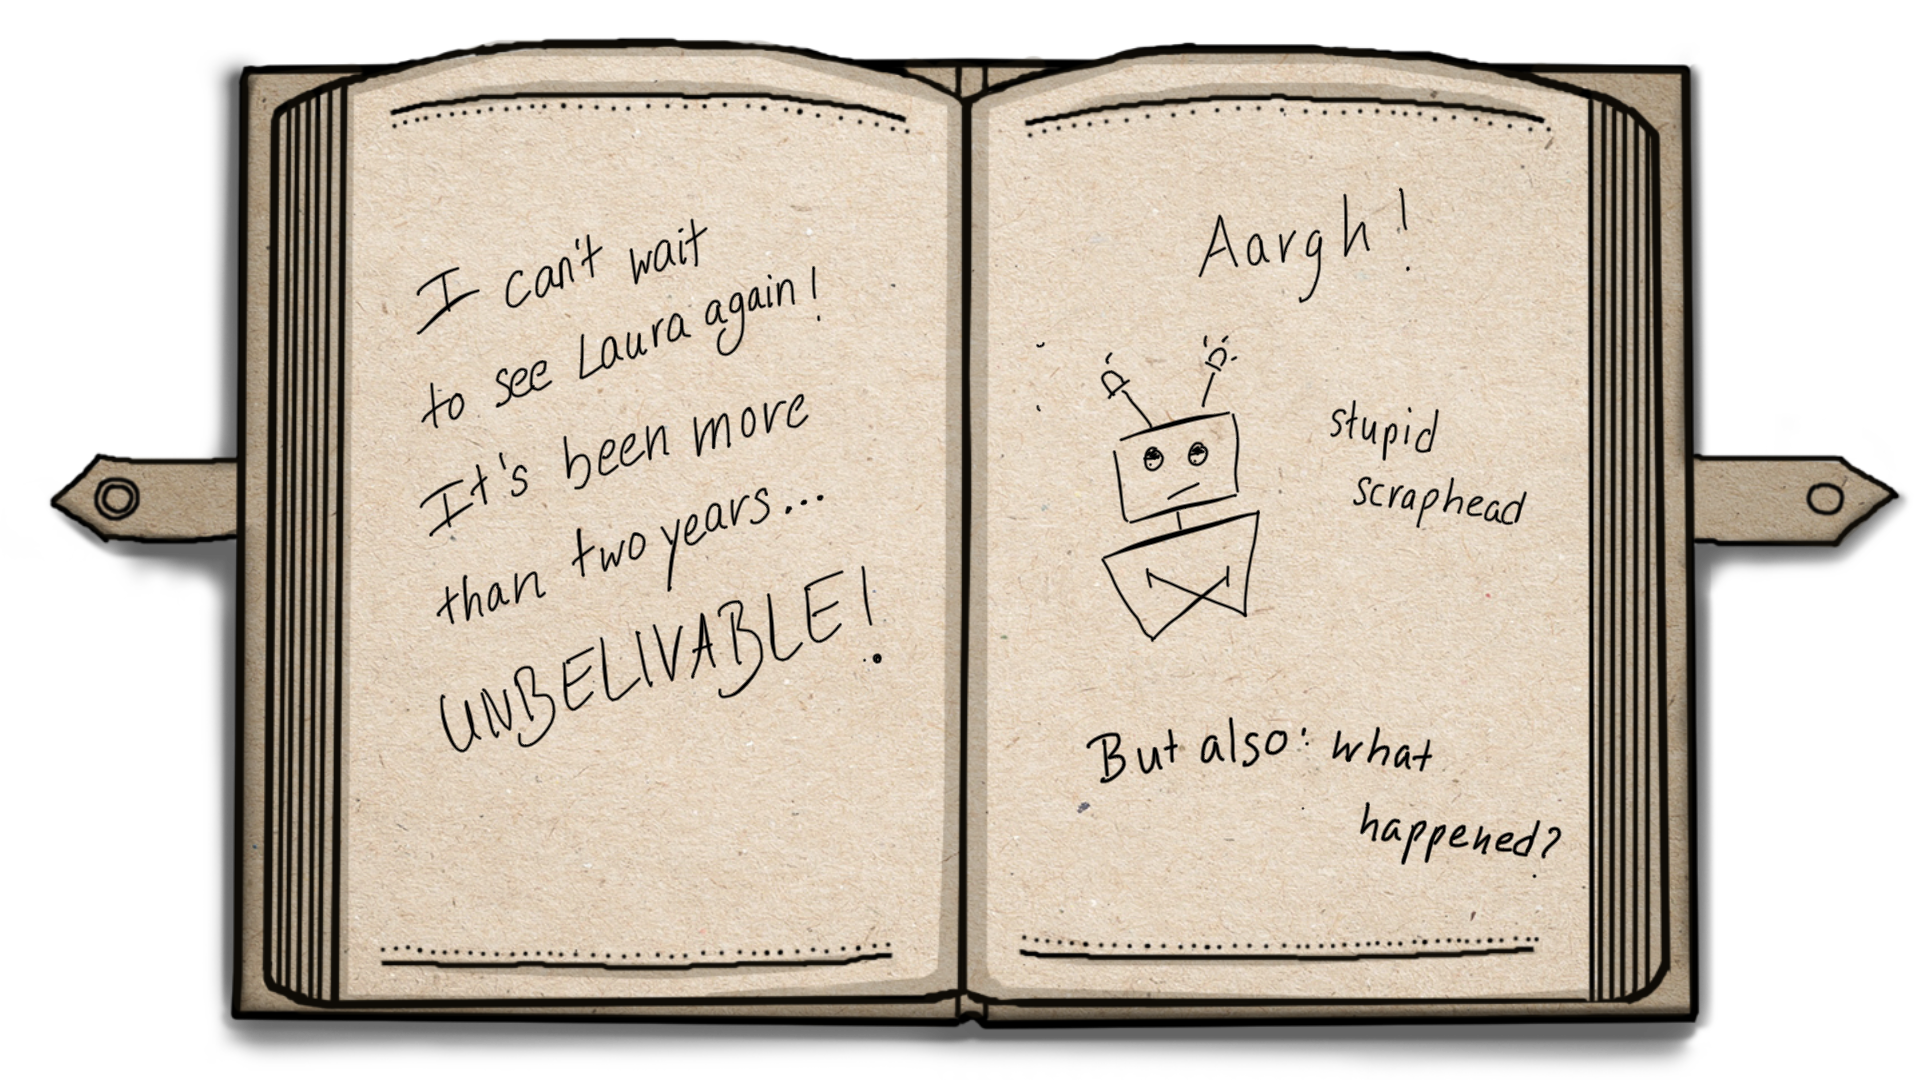 I can't wait
to see Laura again!
It's been more
than two years...
UNBELIVABLE!
Aargh!
stupid
scraphead
But also: what
happened?